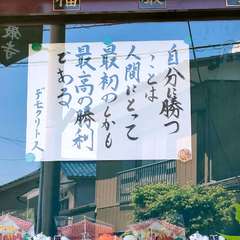 自分に勝つ
ことは
人間にとって
最初のしかも
最高の勝利
である
デモクリトス